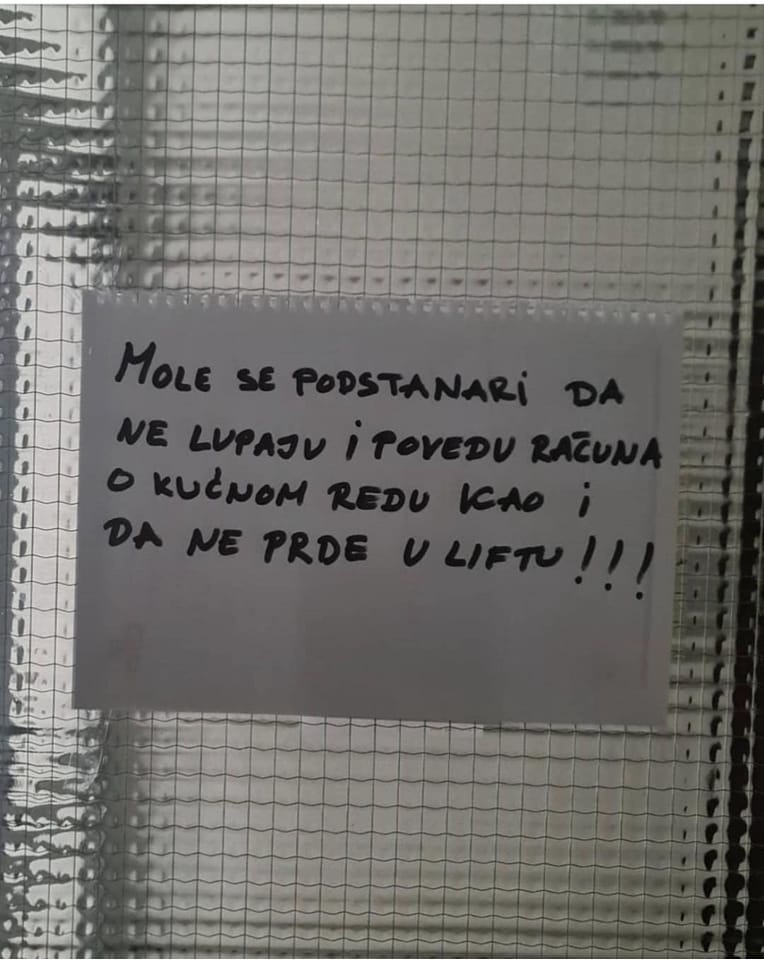 MOLE SE PODSTANARI DA
NE LUPAJU I POVEDU RAČUNA
O KUĆNOM REDU KAO I
DA NE PRDE U LIFTU!!!